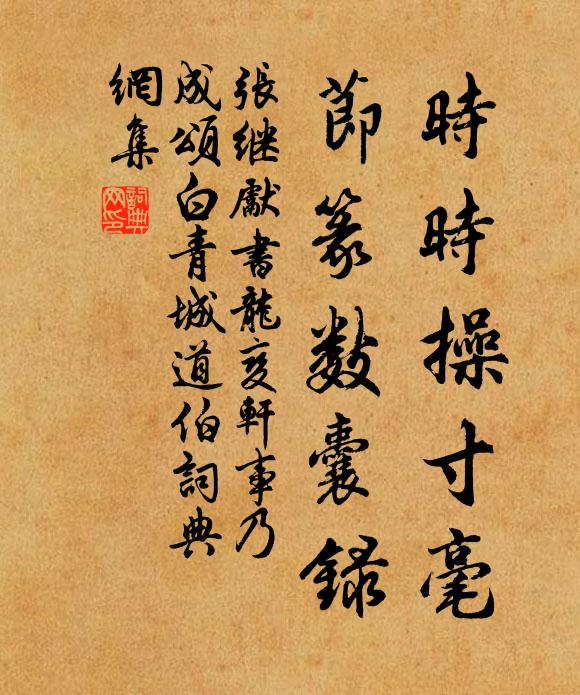 時時操寸毫
節篆数囊録
張継獻書龍变軒事乃
成頌白青城道伯詞典
網集
詞典
网印